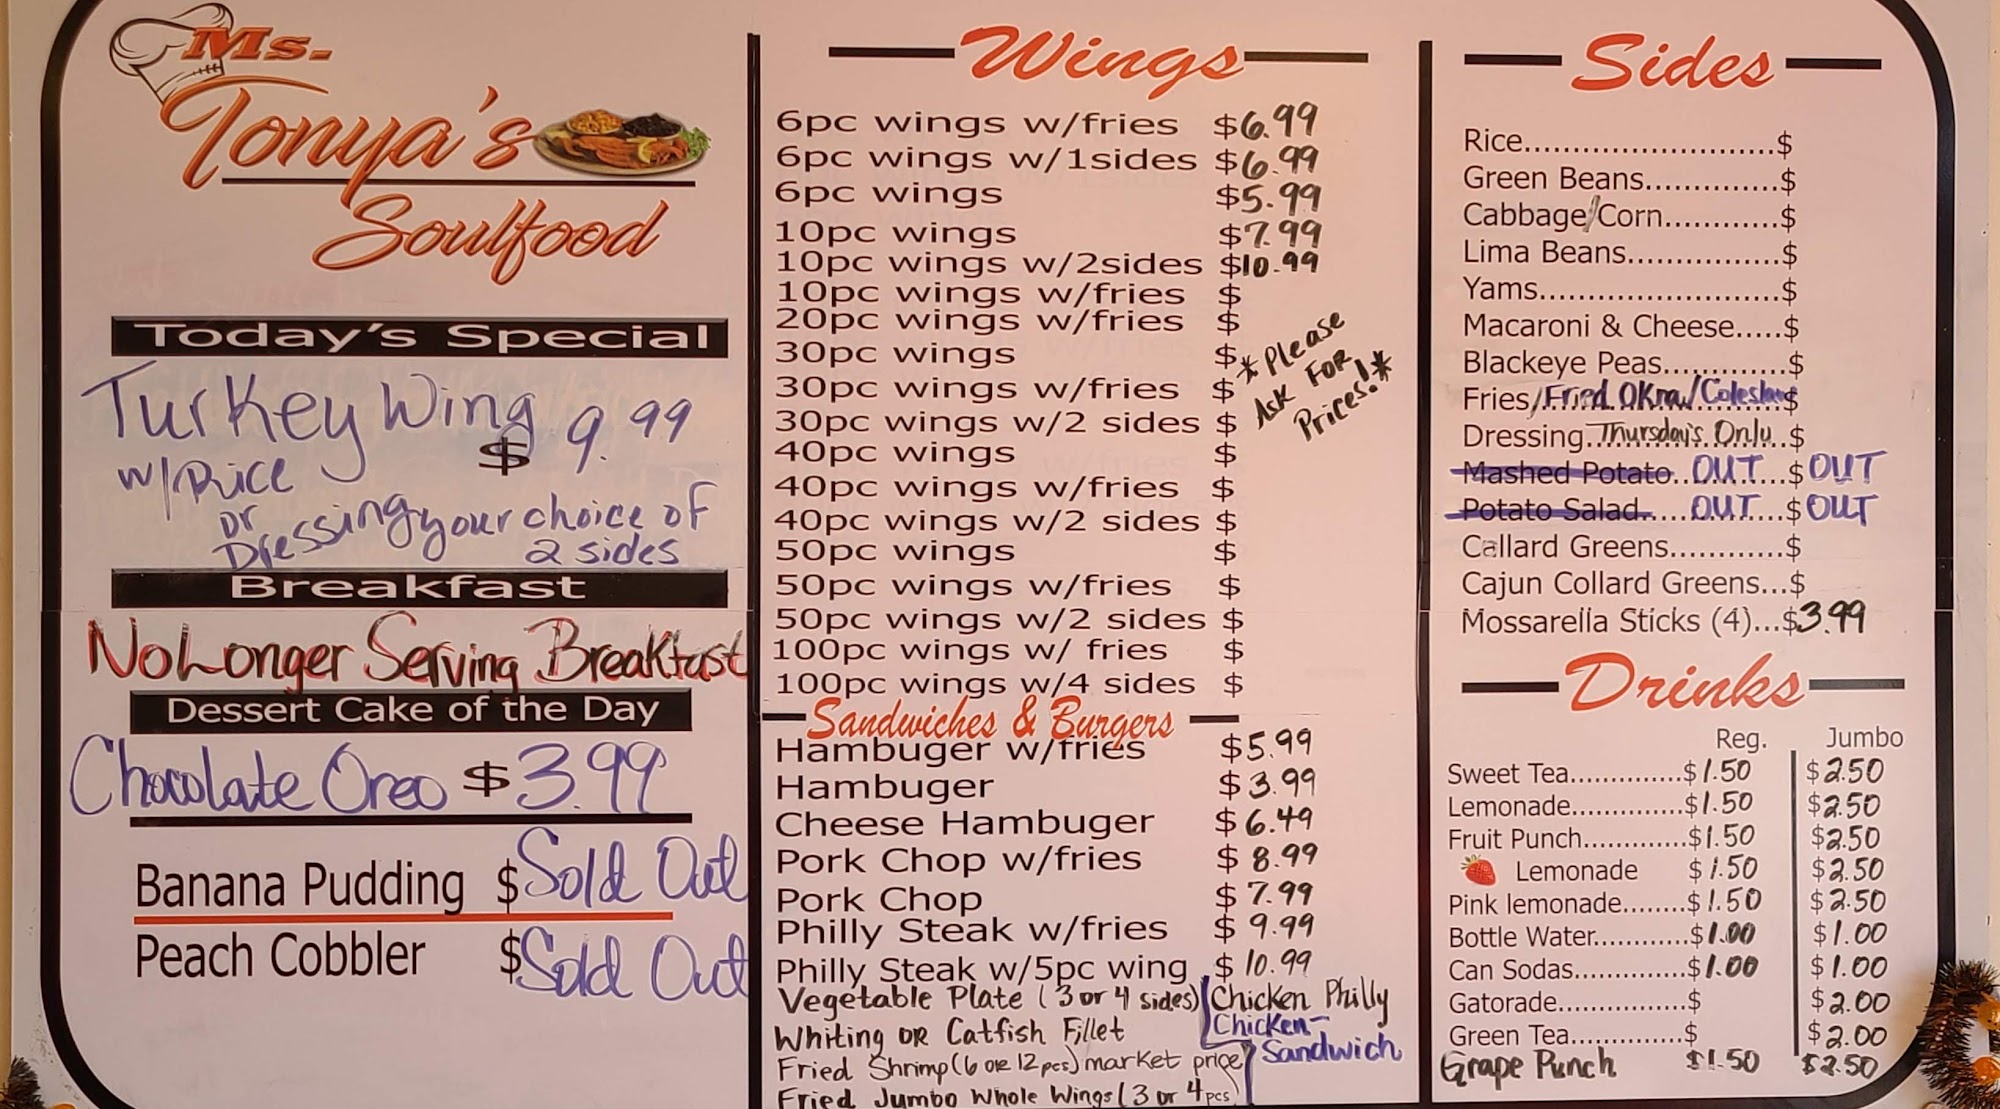 Ms.
Tonya's
Soulfood
Today's Special
Turkey Wing
$ 9.99
w/Rice
or
Dressing your choice of
2 sides
Breakfast
No Longer Serving Breakfast
Dessert Cake of the Day
Chocolate Oreo $3.99
Banana Pudding $Sold Out
Peach Cobbler $Sold Out
Wings
6pc wings w/fries $6.99
6pc wings w/1sides $6.99
6pc wings $5.99
10pc wings $7.99
10pc wings w/2sides $10.99
10pc wings w/fries $
20pc wings w/fries $
30pc wings $
30pc wings w/fries $
30pc wings w/2 sides $
40pc wings $
40pc wings w/fries $
40pc wings w/2 sides $
50pc wings $
50pc wings w/fries $
50pc wings w/2 sides $
100pc wings w/ fries $
100pc wings w/4 sides $
*Please
Ask For
Prices!*
Sandwiches & Burgers
Hambuger w/fries $5.99
Hambuger $3.99
Cheese Hambuger $6.49
Pork Chop w/fries $8.99
Pork Chop $7.99
Philly Steak w/fries $9.99
Philly Steak w/5pc wing $10.99
Vegetable Plate (3 or 4 sides)
Whiting or Catfish Fillet
Fried Shrimp (6 or 12 pcs) market price
Fried Jumbo Whole Wings (3 or 4 pcs
Chicken Philly
Chicken-
Sandwich
Sides
Rice.........................$
Green Beans..............$
Cabbage/Corn............$
Lima Beans................$
Yams.........................$
Macaroni & Cheese.....$
Blackeye Peas.............$
Fries/Fried Okra/Coleslaw$
Dressing..Thursday's Only..$
Mashed Potato..OUT...$OUT
Potato Salad.....OUT...$OUT
Callard Greens............$
Cajun Collard Greens...$
Mossarella Sticks (4)...$3.99
Drinks
Reg. Jumbo
Sweet Tea.............$1.50 $2.50
Lemonade.............$1.50 $2.50
Fruit Punch............$1.50 $2.50
Lemonade $1.50 $2.50
Pink lemonade.......$1.50 $2.50
Bottle Water...........$1.00 $1.00
Can Sodas.............$1.00 $1.00
Gatorade...............$ $2.00
Green Tea.............$ $2.00
Grape Punch $1.50 $2.50